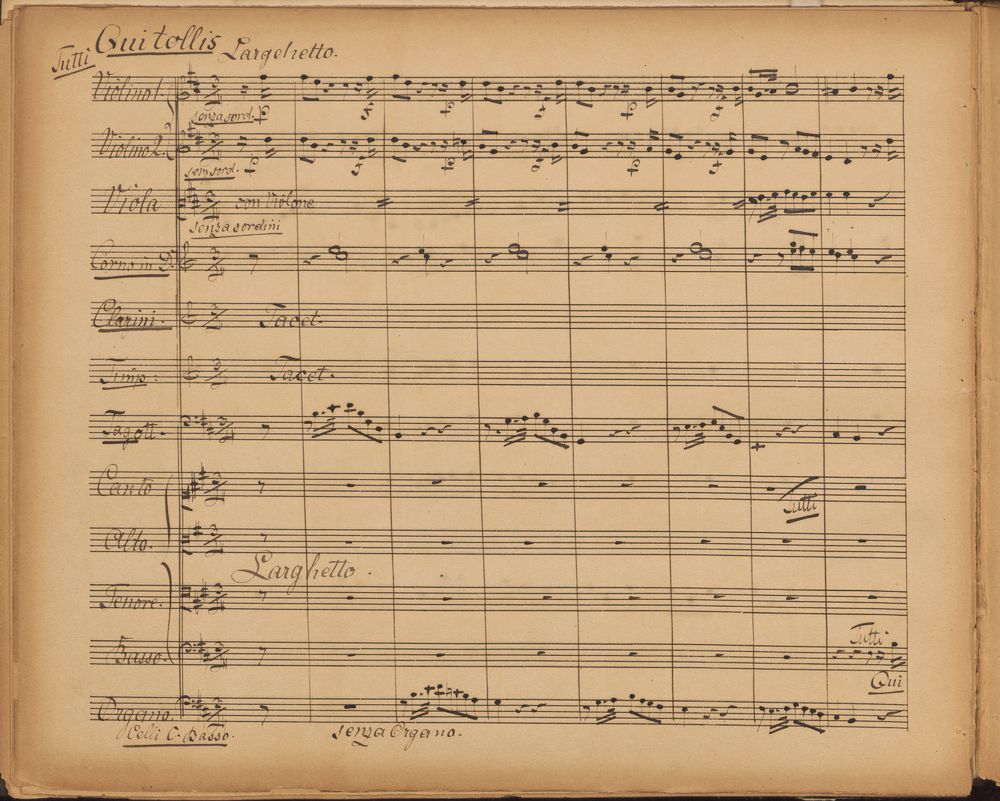 Tutti Qui tollis Largehetto.
Violino 1.
senza sord. p f p f p f p
Violino 2.
sem sord. p f p f p f
Viola con Violone
senza sordini
Corno in D.
Clarini. Tacet.
Timp: Tacet.
Fagott.
Canto
Tutti
Alto.
Larghetto.
Tenore.
Tutti
Basso.
Qui
Organo.
Celli C. Basso. senza Organo.